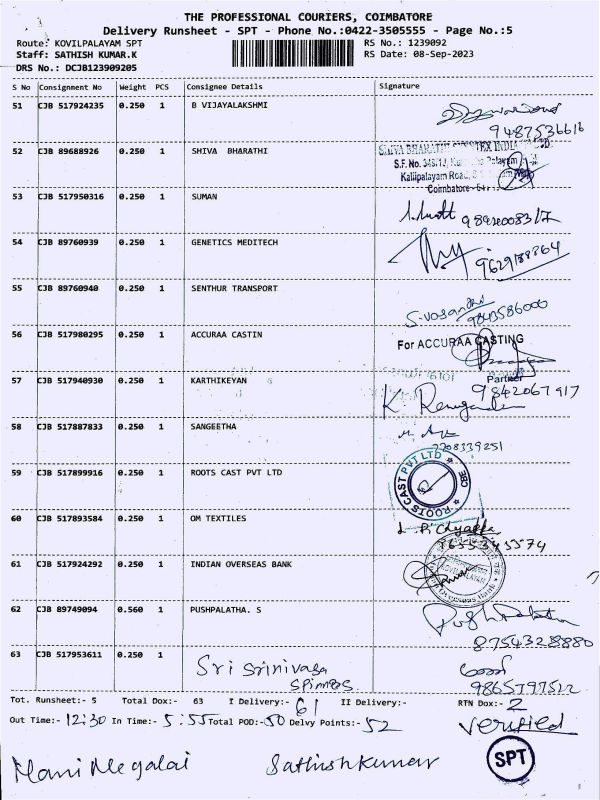 THE PROFESSIONAL COURIERS, COIMBATORE
Delivery Runsheet - SPT - Phone No.:0422-3505555 - Page No.:5
Route: KOVILPALAYAM SPT RS No.: 1239092
Staff: SATHISH KUMAR.K RS Date: 08-Sep-2023
DRS No.: DCJB123909205
S No Consignment No Weight PCS Consignee Details Signature
51 CJB 517924235 0.250 1 B VIJAYALAKSHMI
9487536616
52 CJB 89688926 0.250 1 SHIVA BHARATHI
Kalipalayam Road,
Coimbatore
53 CJB 517950316 0.250 1 SUMAN
54 CJB 89760939 0.250 1 GENETICS MEDITECH
9629188864
55 CJB 89760940 0.250 1 SENTHUR TRANSPORT
9843586000
56 CJB 517980295 0.250 1 ACCURAA CASTIN
For ACCURAA CASTING
Partner
57 CJB 517940930 0.250 1 KARTHIKEYAN
9842067917
58 CJB 517887833 0.250 1 SANGEETHA
7708339251
59 CJB 517899916 0.250 1 ROOTS CAST PVT LTD
ROOTS CAST PVT LTD CBE
60 CJB 517893584 0.250 1 OM TEXTILES
61 CJB 517924292 0.250 1 INDIAN OVERSEAS BANK
62 CJB 89749094 0.560 1 PUSHPALATHA. S
Pushpalatha
8754328880
63 CJB 517953611 0.250 1 Sri Srinivasa
Spinners
Tot. Runsheet:- 5 Total Dox:- 63 I Delivery:- 61 II Delivery:- RTN Dox:- 2
Out Time:- 12:30 In Time:- 5:55 Total POD:- 50 Delvy Points:- 52 verified
Mani Megalai Sathishkumar SPT